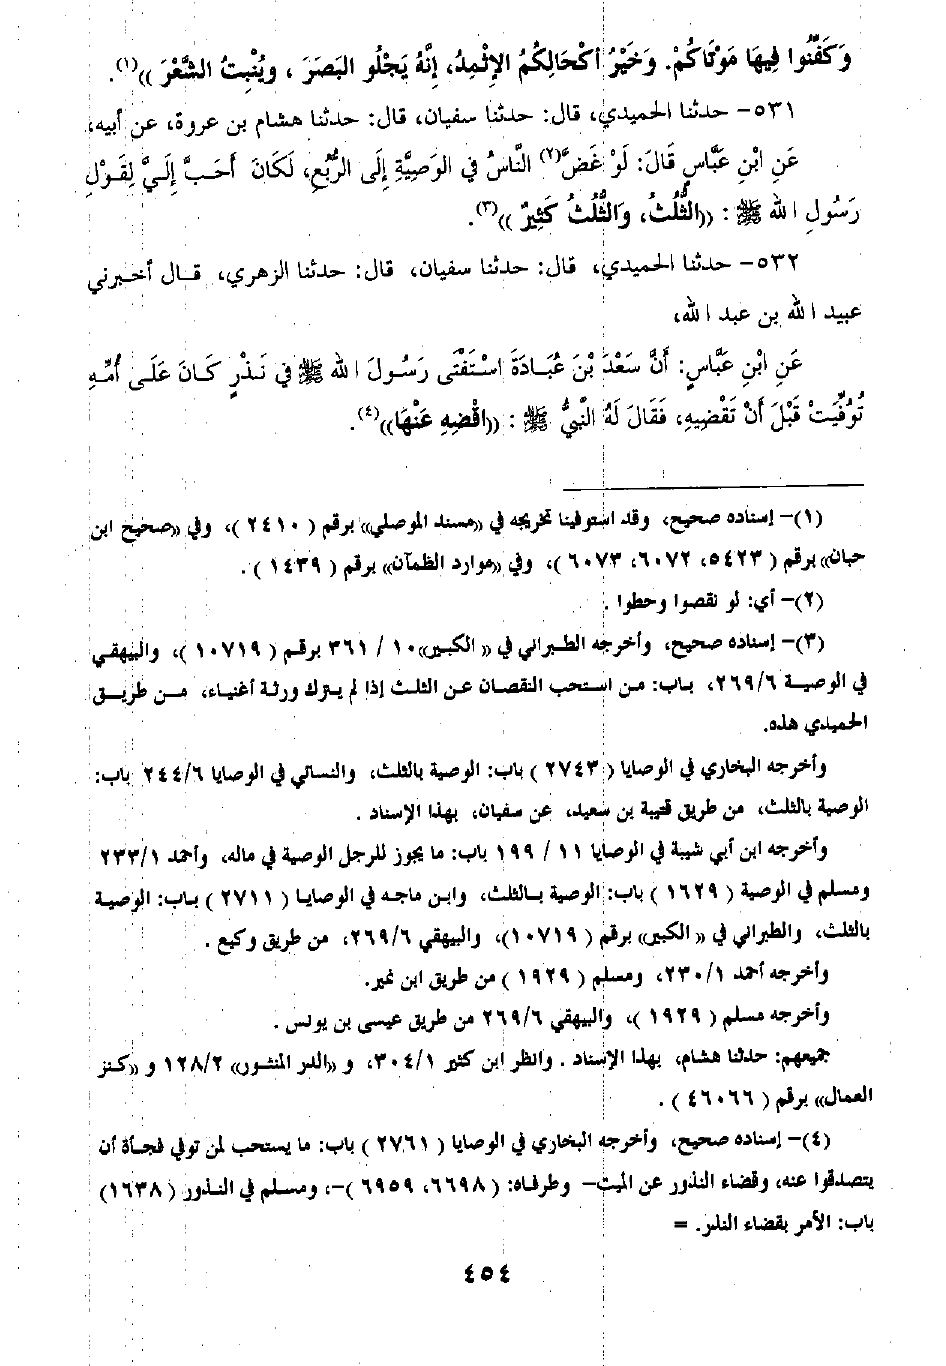 وَكَفِّنُوا فِيهَا مَوْتَاكُمْ. وَخَيْرُ أَكْحَالِكُمُ الإِثْمِدُ، إِنَّهُ يَجْلُو البَصَرَ ، ويُنْبِتُ الشَّعْرَ ))(١).
٥٣١- حدثنا الحميدي، قال: حدثنا سفيان، قال: حدثنا هشام بن عروة، عن أبيه،
عَنِ ابْنِ عَبَّاسٍ قَالَ: لَوْ غَضَّ(٢) النَّاسُ فِي الوَصِيَّةِ إِلَى الرُّبُعِ، لَكَانَ أَحَبَّ إِلَيَّ لِقَوْلِ
رَسُولِ الله ﷺ : ((الثُّلُثُ، وَالثُّلُثُ كَثِيرٌ ))(٣).
٥٣٢- حدثنا الحميدي، قال: حدثنا سفيان، قال: حدثنا الزهري، قال أخبرني
عبيد الله بن عبد الله،
عَنِ ابْنِ عَبَّاسٍ: أَنَّ سَعْدَ بْنَ عُبَادَةَ اسْتَفْتَى رَسُولَ الله ﷺ فِي نَذْرٍ كَانَ عَلَى أُمِّهِ
تُوُفِّيَتْ قَبْلَ أَنْ تَقْضِيهِ، فَقَالَ لَهُ النَّبِيُّ ﷺ : ((اقْضِهِ عَنْهَا))(٤).
(١)- إسناده صحيح، وقد استوفينا تخريجه في ((مسند الموصلي)) برقم ( ٢٤١٠ )، وفي ((صحيح ابن
حبان)) برقم ( ٥٤٢٣، ٦٠٧٢، ٦٠٧٣ )، وفي ((موارد الظمآن)) برقم ( ١٤٣٩ ) .
(٢)- أي: لو نقصوا وحطوا .
(٣)- إسناده صحيح، وأخرجه الطبراني في (( الكبير))١٠ / ٣٦١ برقم ( ١٠٧١٩ )، والبيهقي
في الوصية ٢٦٩/٦، باب: من استحب النقصان عن الثلث إذا لم يترك ورثة أغنياء، من طريق
الحميدي هذه.
وأخرجه البخاري في الوصايا ( ٢٧٤٣ ) باب: الوصية بالثلث، والنسائي في الوصايا ٢٤٤/٦ باب:
الوصية بالثلث، من طريق قتيبة بن سعيد، عن سفيان، بهذا الإسناد .
وأخرجه ابن أبي شيبة في الوصايا ١١ / ١٩٩ باب: ما يجوز للرجل الوصية في ماله، وأحمد ٢٣٣/١
ومسلم في الوصية ( ١٦٢٩ ) باب: الوصية بالثلث، وابن ماجه في الوصايا ( ٢٧١١ ) باب: الوصية
بالثلث، والطبراني في (( الكبير)) برقم ( ١٠٧١٩)، والبيهقي ٢٦٩/٦، من طريق وكيع .
وأخرجه أحمد ٢٣٠/١، ومسلم ( ١٩٢٩ ) من طريق ابن نمير.
وأخرجه مسلم ( ١٩٢٩ )، والبيهقي ٢٦٩/٦ من طريق عيسى بن يونس .
جميعهم: حدثنا هشام، بهذا الإسناد . وانظر ابن كثير ٣٠٤/١، و ((الدر المنثور)) ١٢٨/٢ و ((كنز
العمال)) برقم ( ٤٦٠٦٦ ) .
(٤)- إسناده صحيح، وأخرجه البخاري في الوصايا ( ٢٧٦١ ) باب: ما يستحب لمن توفي فجأة أن
يتصدقوا عنه، وقضاء النذور عن الميت- وطرفاه: ( ٦٦٩٨، ٦٩٥٩ )-، ومسلم في النذور ( ١٦٣٨)
باب: الأمر بقضاء النذر. =
٤٥٤